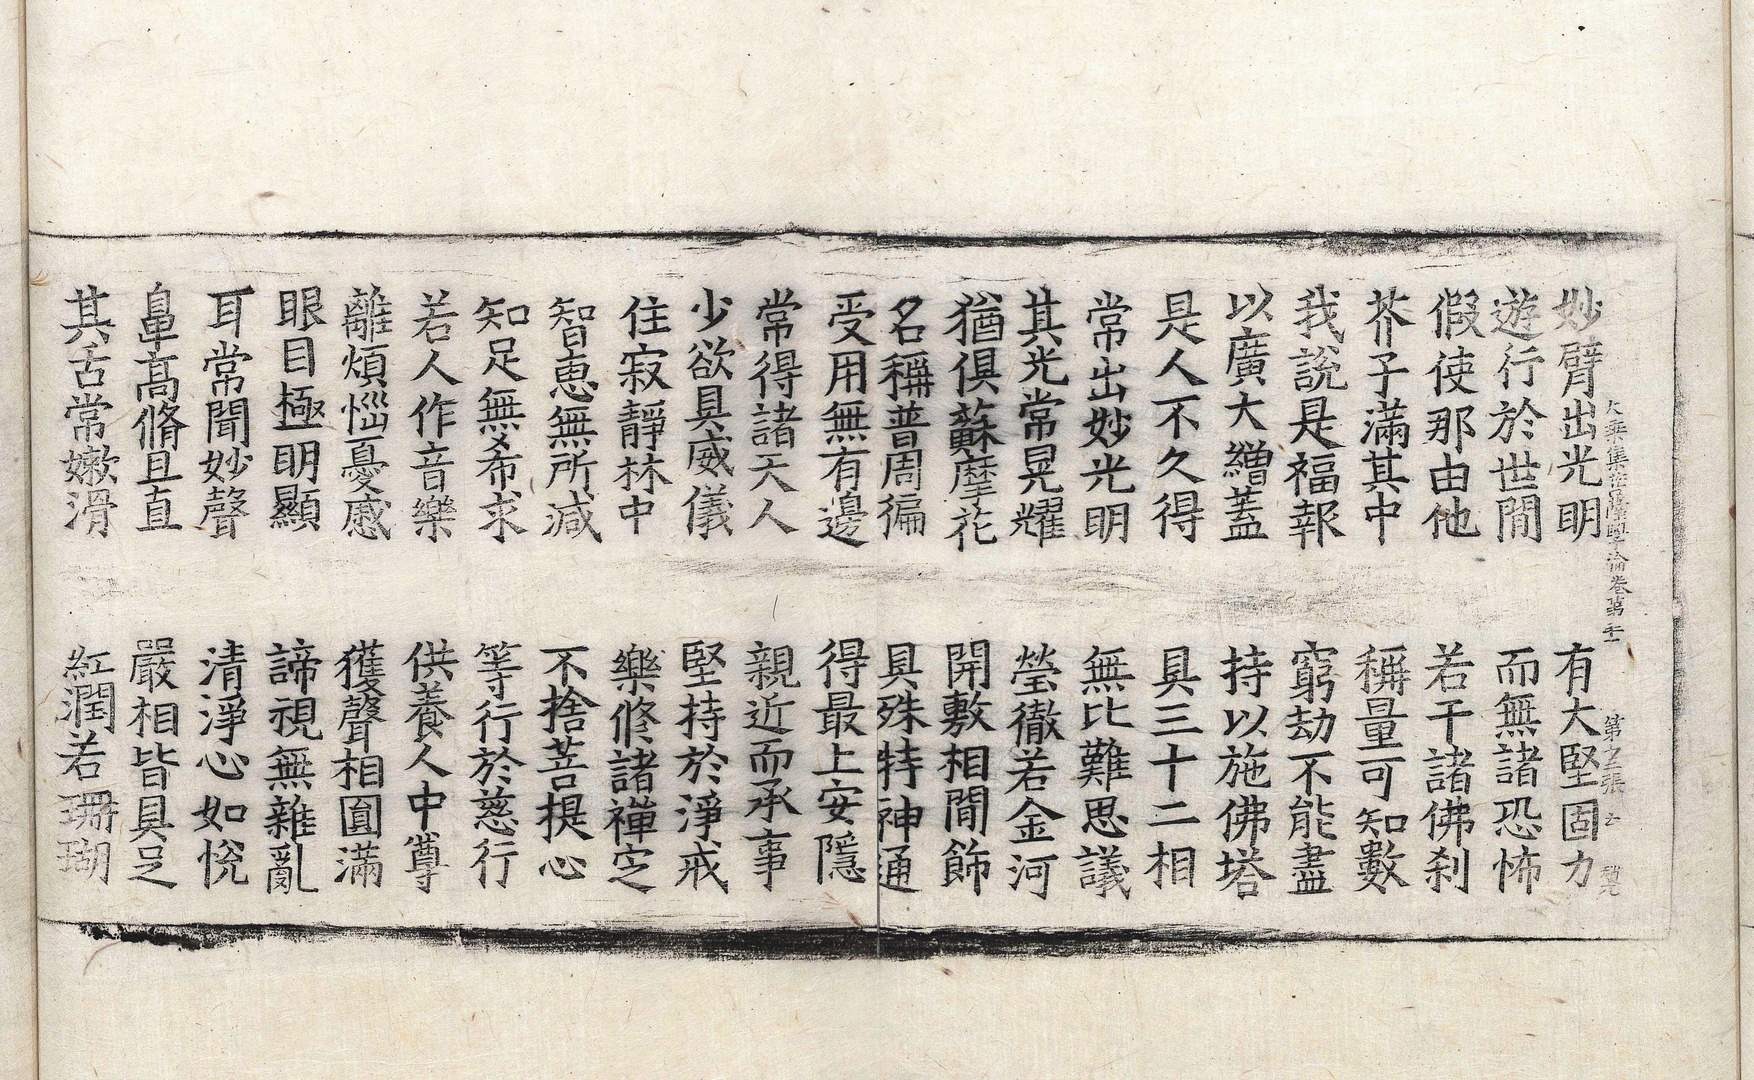 妙臂出光明　有大堅固力
遊行於世間　而無諸恐怖
假使那由他　若干諸佛刹
芥子滿其中　稱量可知數
我說是福報　窮劫不能盡
以廣大繒蓋　持以施佛塔
是人不久得　具三十二相
常出妙光明　無比難思議
其光常晃耀　瑩徹若金河
猶俱蘇摩花　開敷相間飾
名稱普周徧　具殊特神通
受用無有邊　得最上安隱
常得諸天人　親近而承事
少欲具威儀　堅持於淨戒
住寂靜林中　樂修諸禪定
智惠無所減　不捨菩提心
知足無希求　等行於慈行
若人作音樂　供養人中尊
離煩惱憂慼　獲聲相圓滿
眼目極明顯　諦視無雜亂
耳常聞妙聲　清淨心如悅
鼻高脩且直　嚴相皆具足
其舌常嫩滑　紅潤若珊瑚